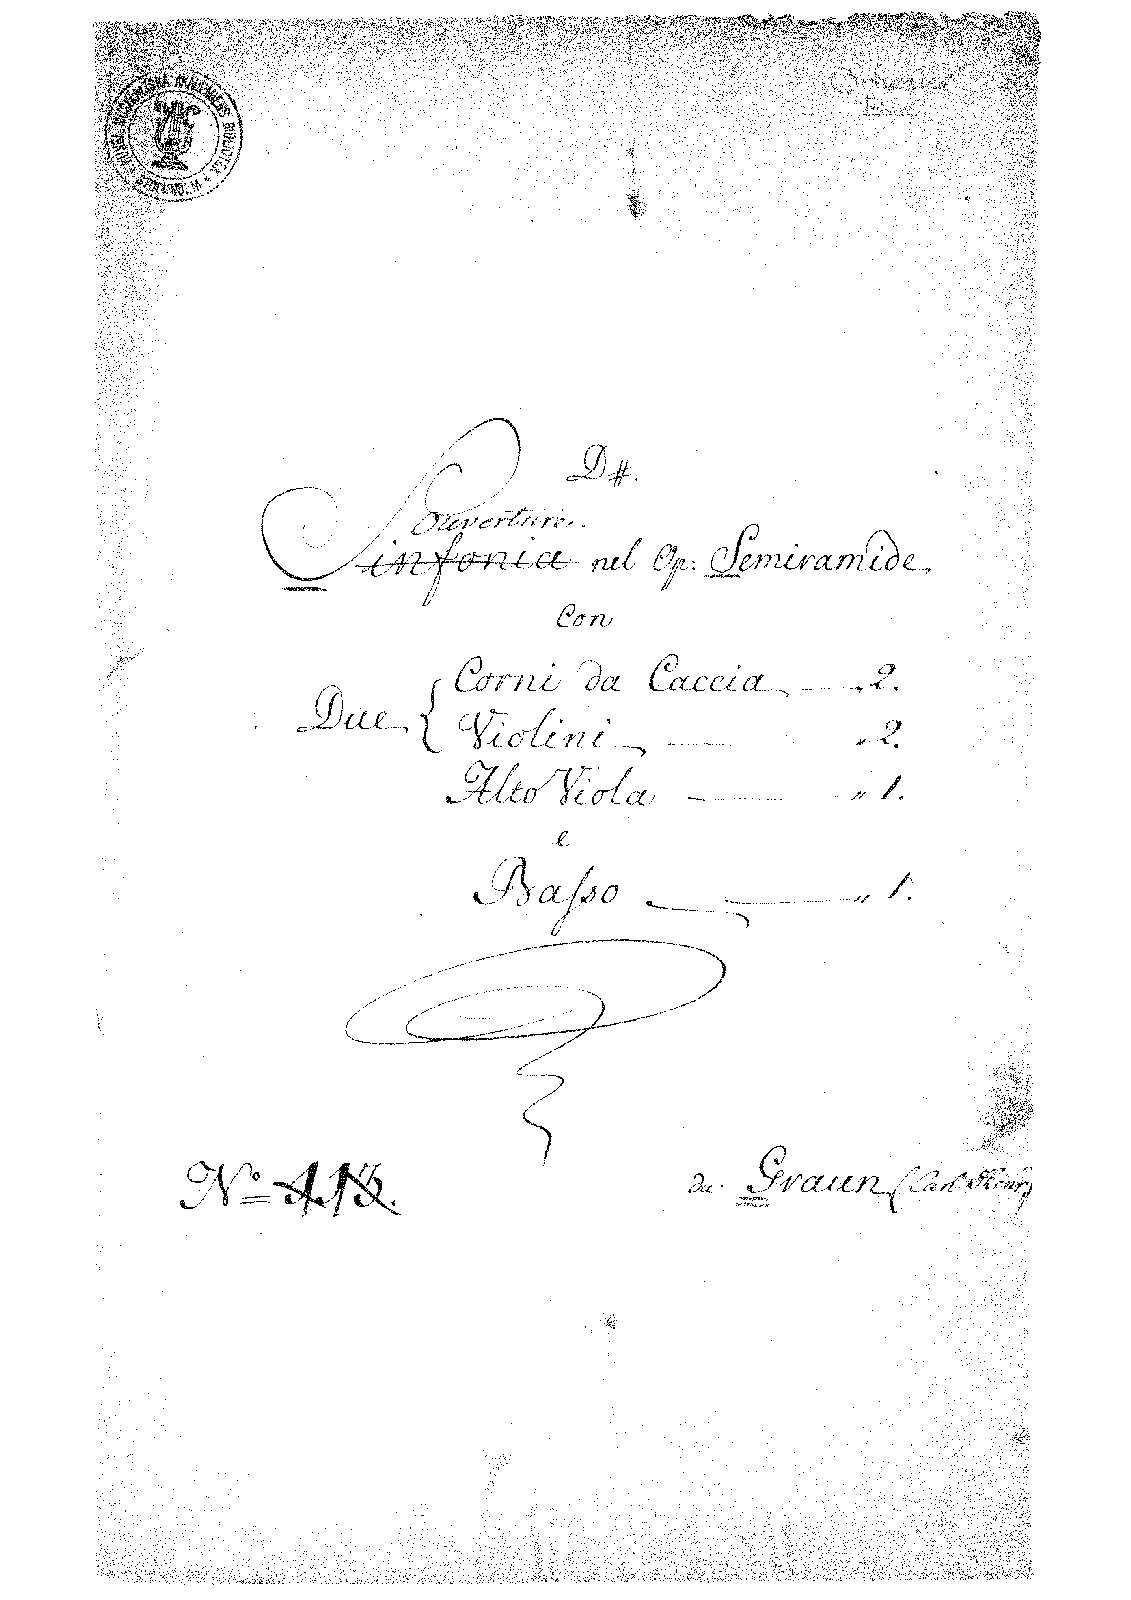 D#.
Ouverture.
Sinfonia nel Op: Semiramide
con
Due { Corni da Caccia — „ 2.
Violini — „ 2.
Alto Viola — „ 1.
e
Basso — „ 1.
No
du Graun (Carl Heinr.